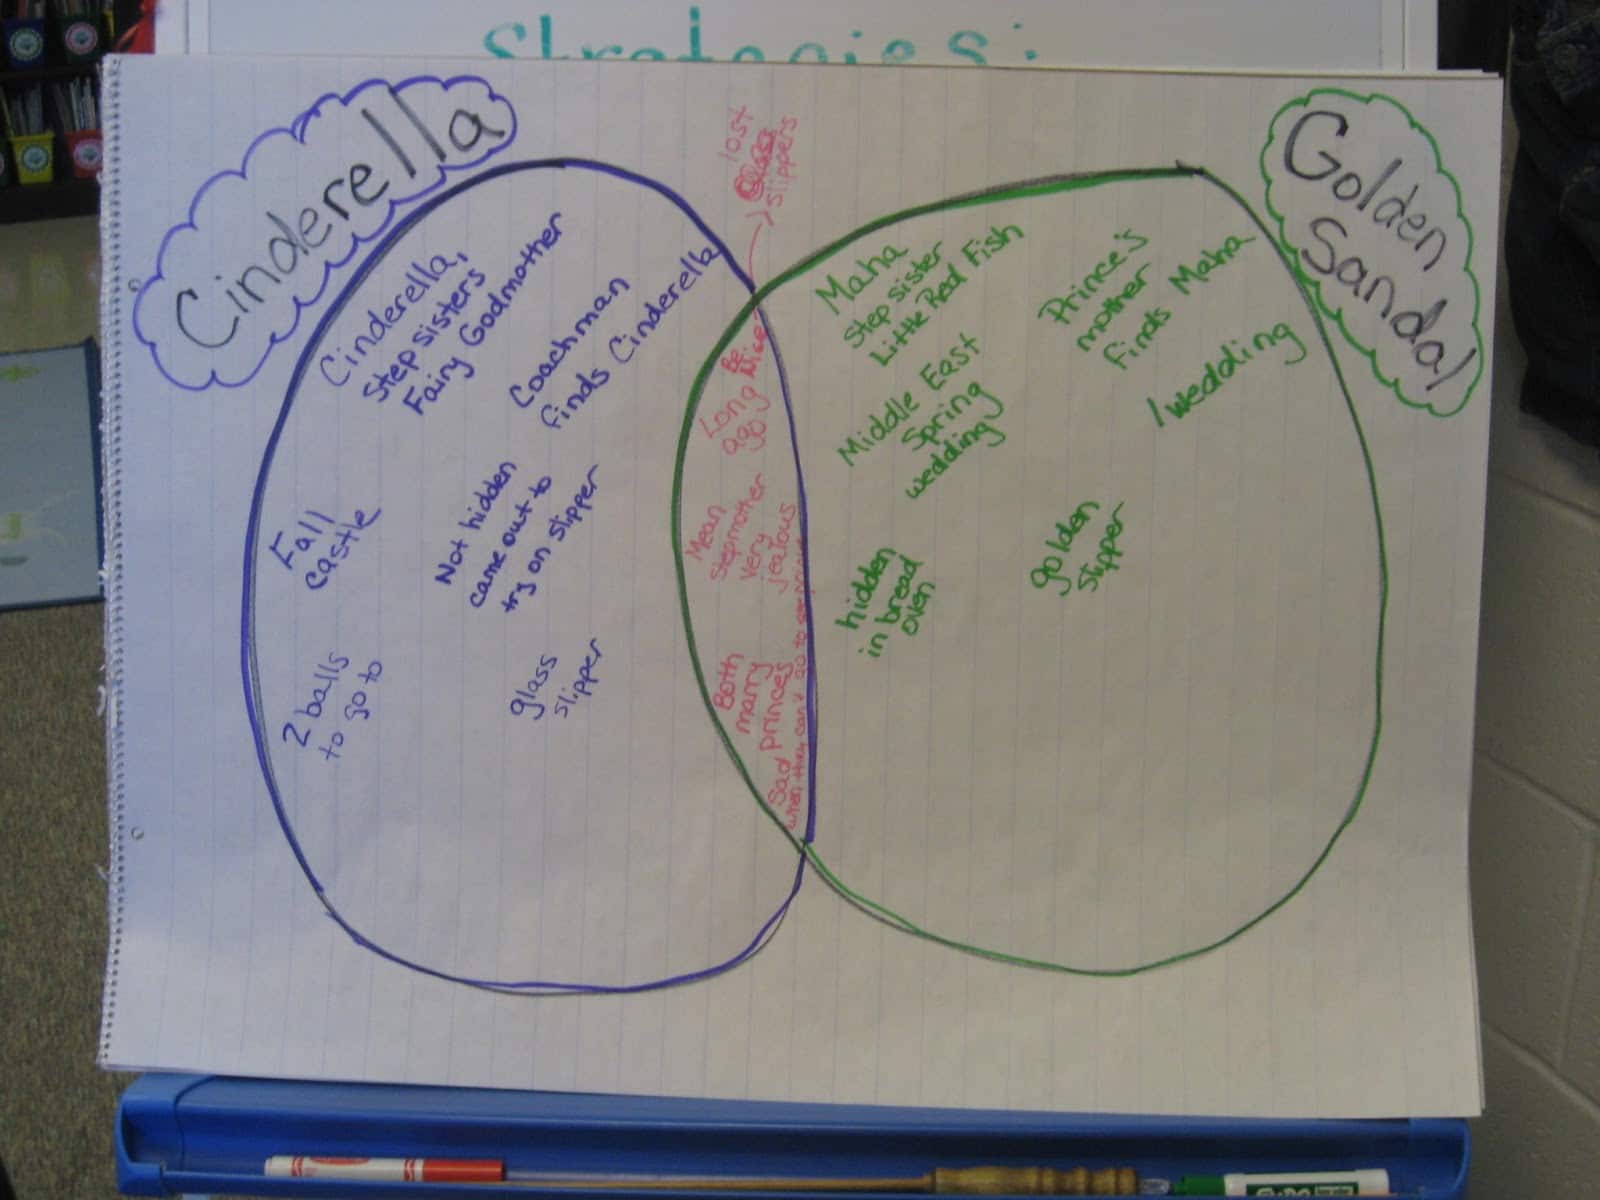 Strategies:
Cinderella
Golden
Sandal
lost
slippers
Cinderella,
step sisters
Fairy Godmother
Coachman
finds Cinderella
Fall
castle
Not hidden
came out to
try on slipper
2 balls
to go to
glass
slipper
Be
Nice
Long
ago
Mean
stepmother
Very
jealous
Both
marry
princes
Sad
when they can't go to
Maha
step sister
Little Red Fish
Prince's
mother
finds Maha
Middle East
Spring
wedding
1 wedding
hidden
in bread
oven
golden
slipper
EXPO